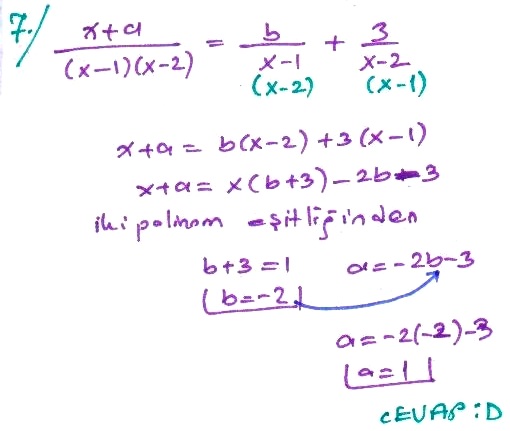 7./ (x+a)/((x-1)(x-2)) = b/(x-1) + 3/(x-2)
(x-2) (x-1)
x+a = b(x-2) + 3(x-1)
x+a = x(b+3) - 2b - 3
iki polinom eşitliğinden
b+3 = 1 a = -2b-3
b = -2
a = -2(-2)-3
a = 1
CEVAP : D